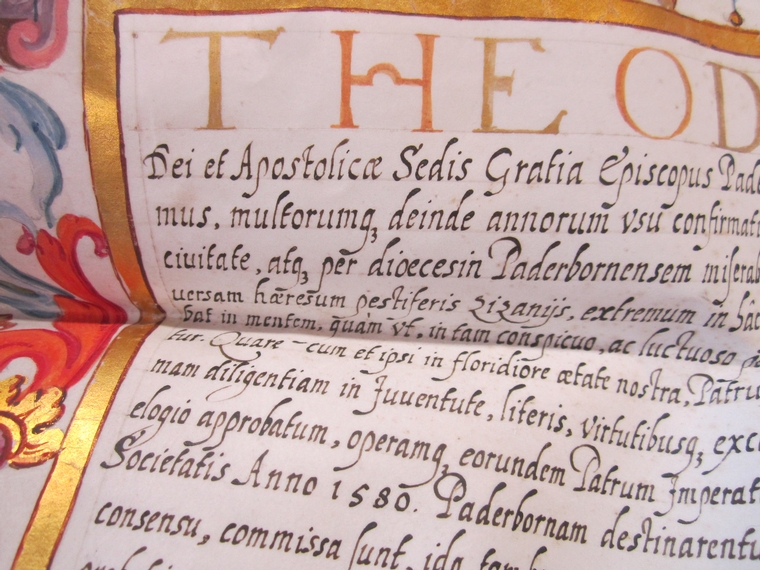 THEOD
Dei et Apostolicæ Sedis Gratia Episcopus Pade
mus, multorumq; deinde annorum vsu confirmat
ciuitate, atq; per dioecesin Paderbornensem miserab
uersam hæresum pestiferis zizanijs, extremum in hâc
bat in mentem, quàm vt, in tam conspicuo, ac luctuoso
tur. Quare cum et ipsi in floridiore ætate nostra, Patru
mam diligentiam in Juuentute, literis, virtutibusq; exco
elogio approbatum, operamq; eorundem Patrum Imperat
Societatis Anno 1580. Paderbornam destinarentu
consensu, commissa sunt, idq;